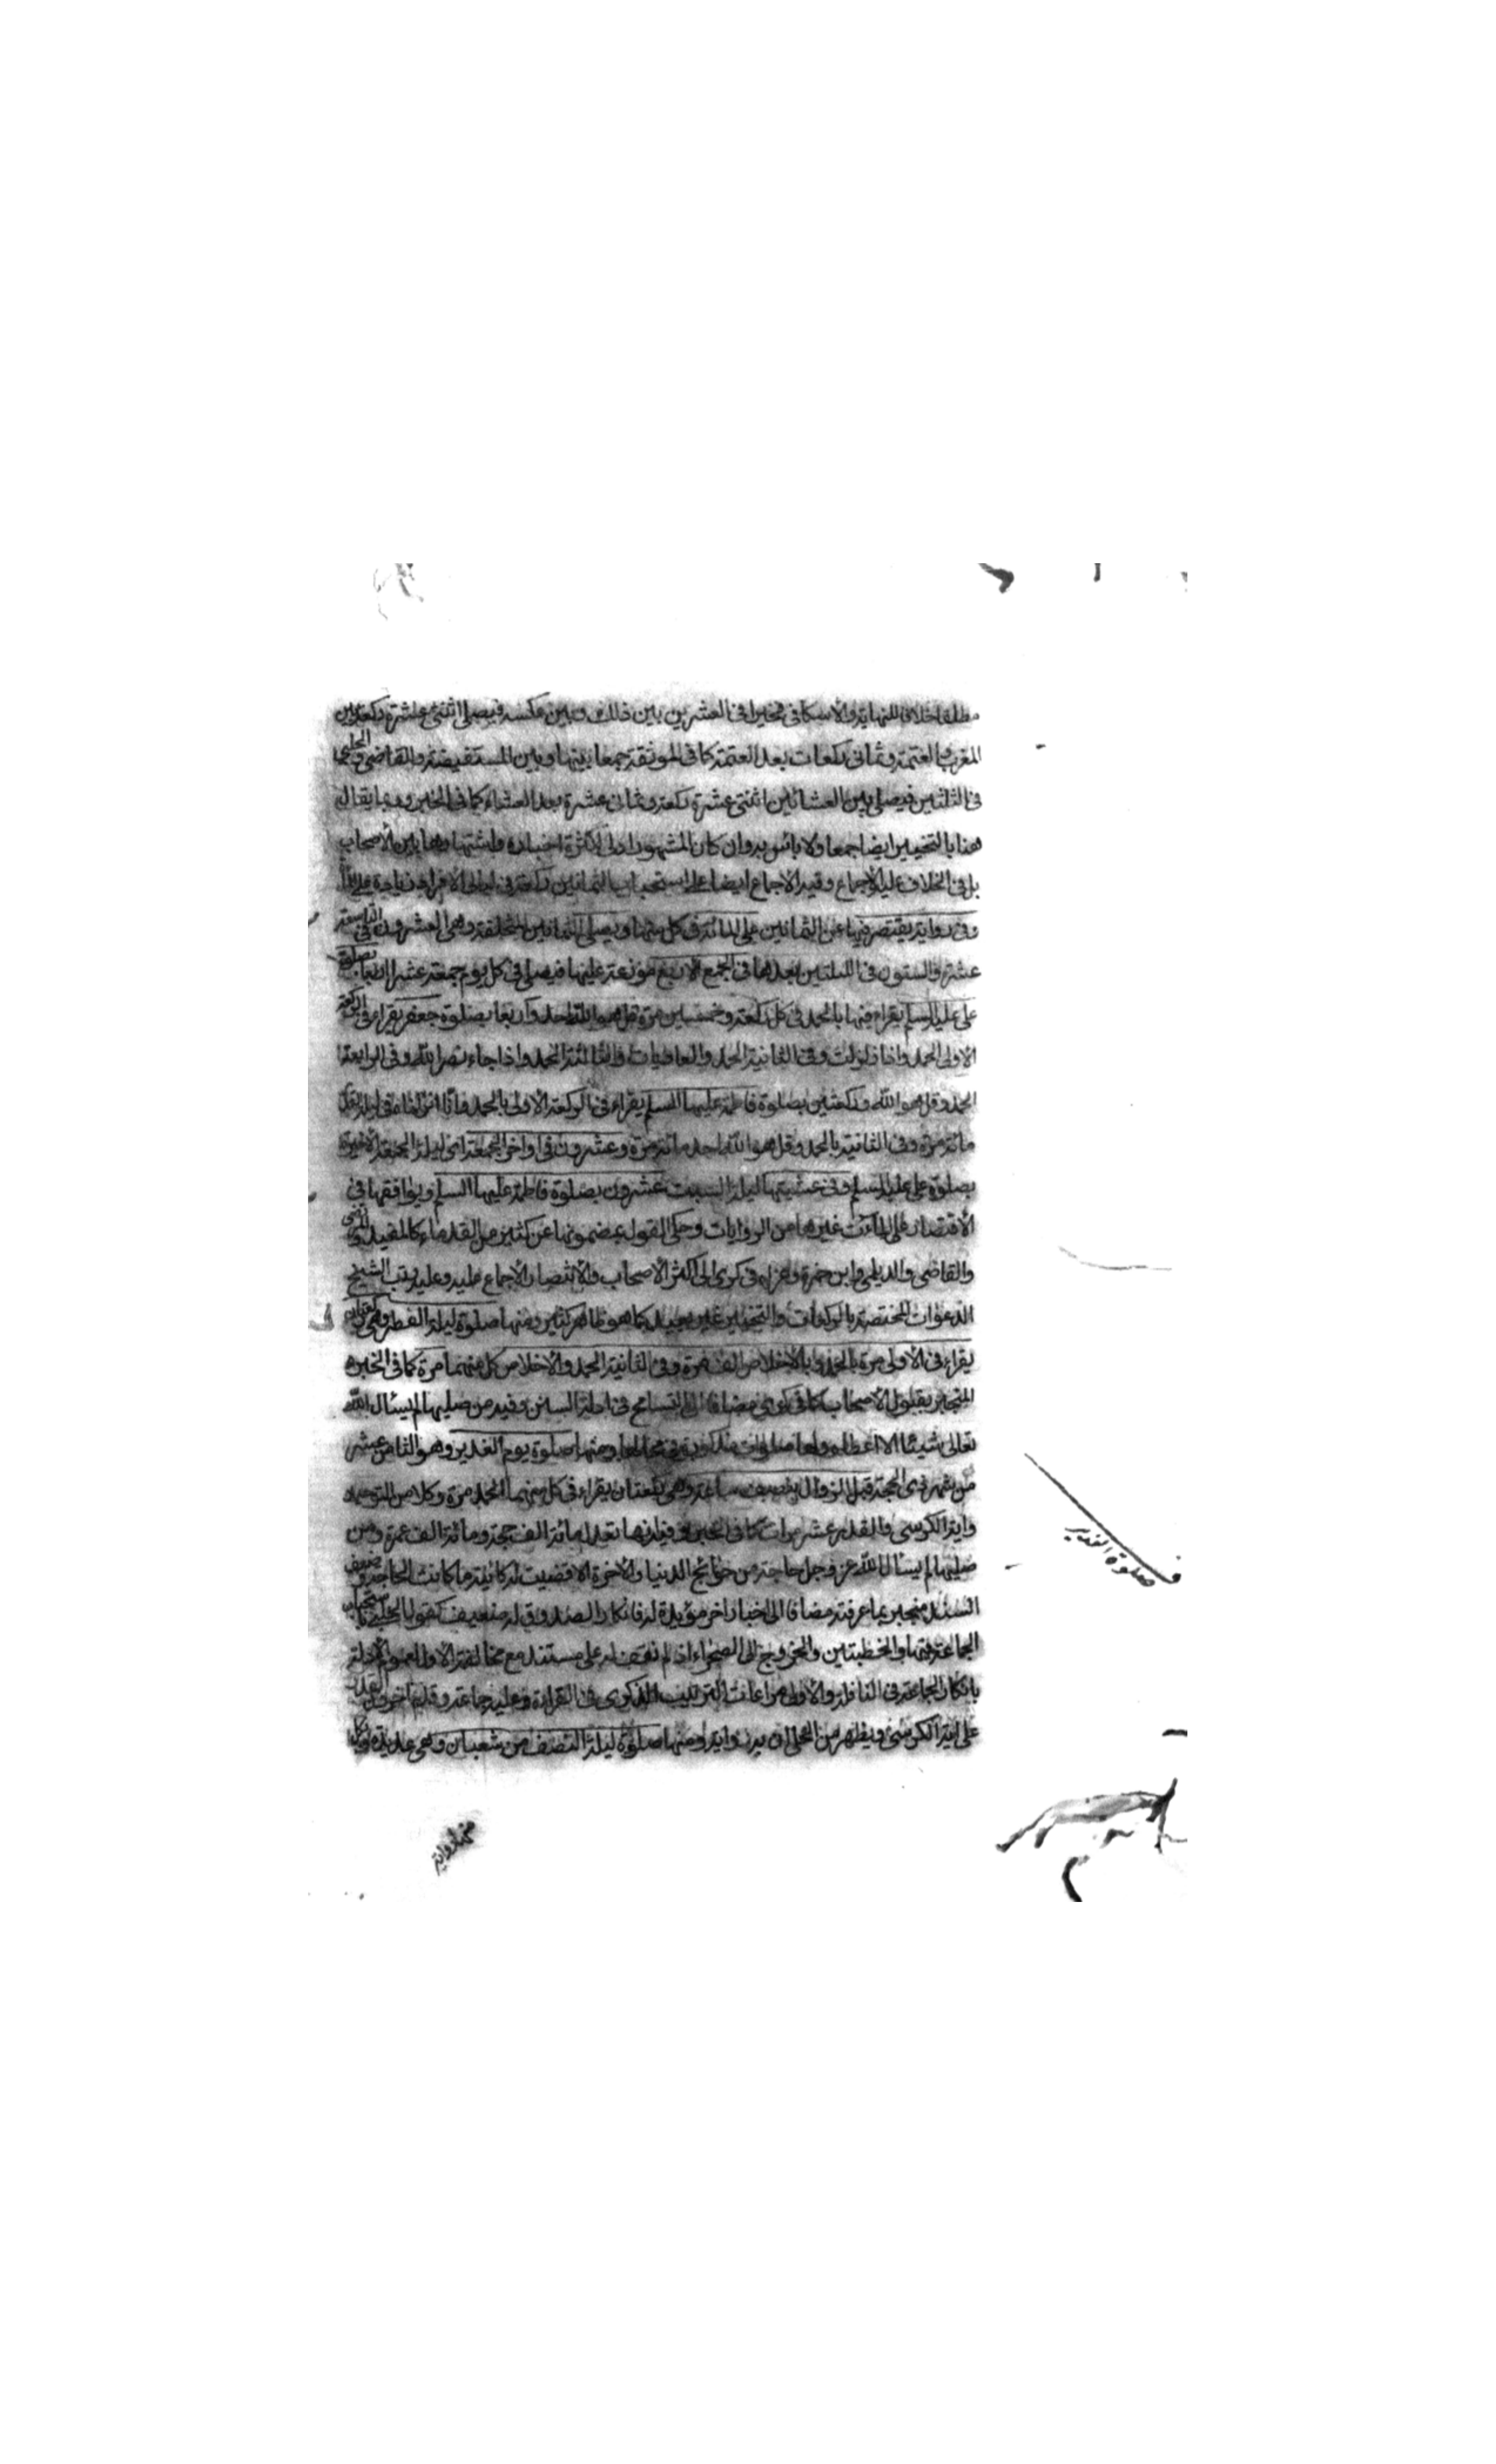 مطلقا خلافا للنهاية والاسكافي فخيرا في العشرين بين ذلك وبين عكسه فيصلي اثنتي عشرة ركعة بين
المغرب والعتمة وثماني ركعات بعد العتمة كما في الموثقة جمعا بينها وبين المستفيضة والقاضي والحلبي
في الثلثين فيصلي بين العشائين اثنتي عشرة ركعة وثماني عشرة بعد العشاء كما في الخبرين وربما يقال
هنا بالتخيير ايضا جمعا ولا باس به وان كان المشهور اولى لكثرة اخباره واشتهارها بين الاصحاب
بل في الخلاف عليه الاجماع وفيه الاجماع ايضا على استحباب الثمانين ركعة في ليالي الافراد زيادة على
وفي رواية يقتصر فيها عن الثمانين على المائة في كل منها ويصلي الثمانين المتخلفة وهي العشرون في التاسعة
عشرة والستون في الليلتين بعدها في الجمع الاربع موزعة عليها فيصلي في كل يوم جمعة عشرا اربعا بصلوة
علي عليه السلم يقراء فيها بالحمد في كل ركعة وخمسين مرة قل هو الله احد واربعا بصلوة جعفر يقراء في الركعة
الاولى الحمد واذا زلزلت وفي الثانية الحمد والعاديات والثالثة الحمد واذا جاء نصر الله وفي الرابعة
الحمد وقل هو الله وركعتين بصلوة فاطمة عليها السلم يقراء في الركعة الاولى بالحمد وانا انزلناه في ليلة القدر
مائة مرة وفي الثانية بالحمد وقل هو الله احد مائة مرة وعشرون في اواخر الجمعة اي ليلة الجمعة الاخيرة
بصلوة علي عليه السلم وفي عشيتها ليلة السبت عشرون بصلوة فاطمة عليها السلم ويوافقها في
الاقتصار على المائة غيرها من الروايات وحكي القول بمضمونها عن كثير من القدماء كالمفيد والمرتضى
والقاضي والديلمي وابن حمزة وعزاه في كرى الى اكثر الاصحاب والانتصار الاجماع عليه وعليه رتب الشيخ
الدعوات المختصة بالركعات والتخيير غير بعيد كما هو ظاهر كثير ومنها صلوة ليلة الفطر وهي ركعتان
يقراء في الاولى مرة بالحمد وبالاخلاص الف مرة وفي الثانية الحمد والاخلاص كل منهما مرة كما في الخبر
المنجبر بقبول الاصحاب كما في كرى مضافا الى التسامح في ادلة السنن وفيه من صليها لم يسئال الله
تعالى شيئا الا اعطاه ولها صلوات مذكورة في محلها ومنها صلوة يوم الغدير وهو الثامن عشر
من شهر ذي الحجة قبل الزوال بنصف ساعة وهي ركعتان يقراء في كل منهما الحمد مرة وكلا من التوحيد
واية الكرسي والقدر عشر مرات كما في الخبر وفيه انها تعدل مائة الف حجة ومائة الف عمرة ومن
صليها لم يسئال الله عز وجل حاجة من حوائج الدنيا والاخرة الا قضيت له كائنة ما كانت الحاجة وضعف
السند منجبر بما عرفته مضافا الى اخبار اخر مؤيدة له فانكار الصدوق له ضعيف كقول الحلبي باستحباب
الجماعة فيها والخطبتين والخروج الى الصحراء اذ لم نقف له على مستند مع مخالفة الاول لعموم الادلة
بانكار الجماعة في النافلة والاولى مراعات الترتيب الذكري في القراءة وعليه جماعة وقدم اخرون القدر
على اية الكرسي ويظهر من الحلي ان به رواية ومنها صلوة ليلة النصف من شعبان وهي عديدة
صلوة الغدير